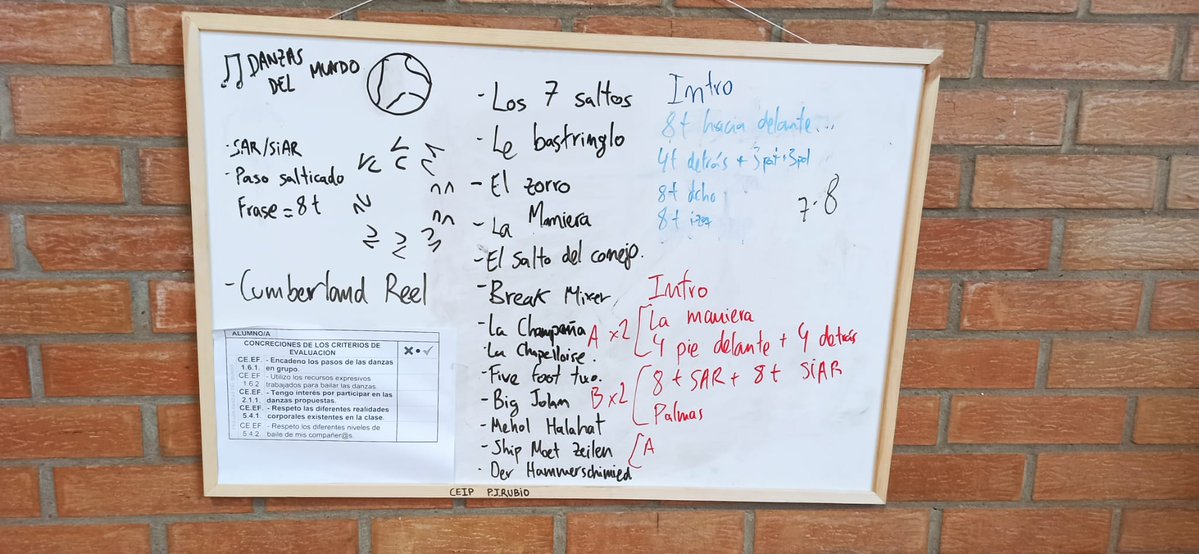 DANZAS
DEL MUNDO
- SAR/SiAR
- Paso salticado
Frase = 8 t
- Cumberland Reel
ALUMNO/A
CONCRECIONES DE LOS CRITERIOS DE
EVALUACIÓN
CE.EF. 1.6.1. - Encadeno los pasos de las danzas en grupo.
CE.EF. 1.6.2. - Utilizo los recursos expresivos trabajados para bailar las danzas.
CE.EF. 2.1.1. - Tengo interés por participar en las danzas propuestas.
CE.EF. 5.4.1. - Respeto las diferentes realidades corporales existentes en la clase.
CE.EF. 5.4.2. - Respeto los diferentes niveles de baile de mis compañer@s.
- Los 7 saltos
- Le bastringlo
- El zorro
- La Maniera
- El salto del conejo.
- Break Mixer
- La Champaña
- La Chapelloise.
- Five foot two.
- Big John
- Mehol Halahat
- Ship Moet Zeilen
- Der Hammerschimied
Intro
8t hacia delante...
4t detrás + 3 pat + 3 pal
8t dcho
8t izq
7·8
Intro
A x2 [ La maniera
4 pie delante + 4 detrás
B x2 [ 8 t SAR + 8t SiAR
Palmas
[ A
CEIP P.J.RUBIO